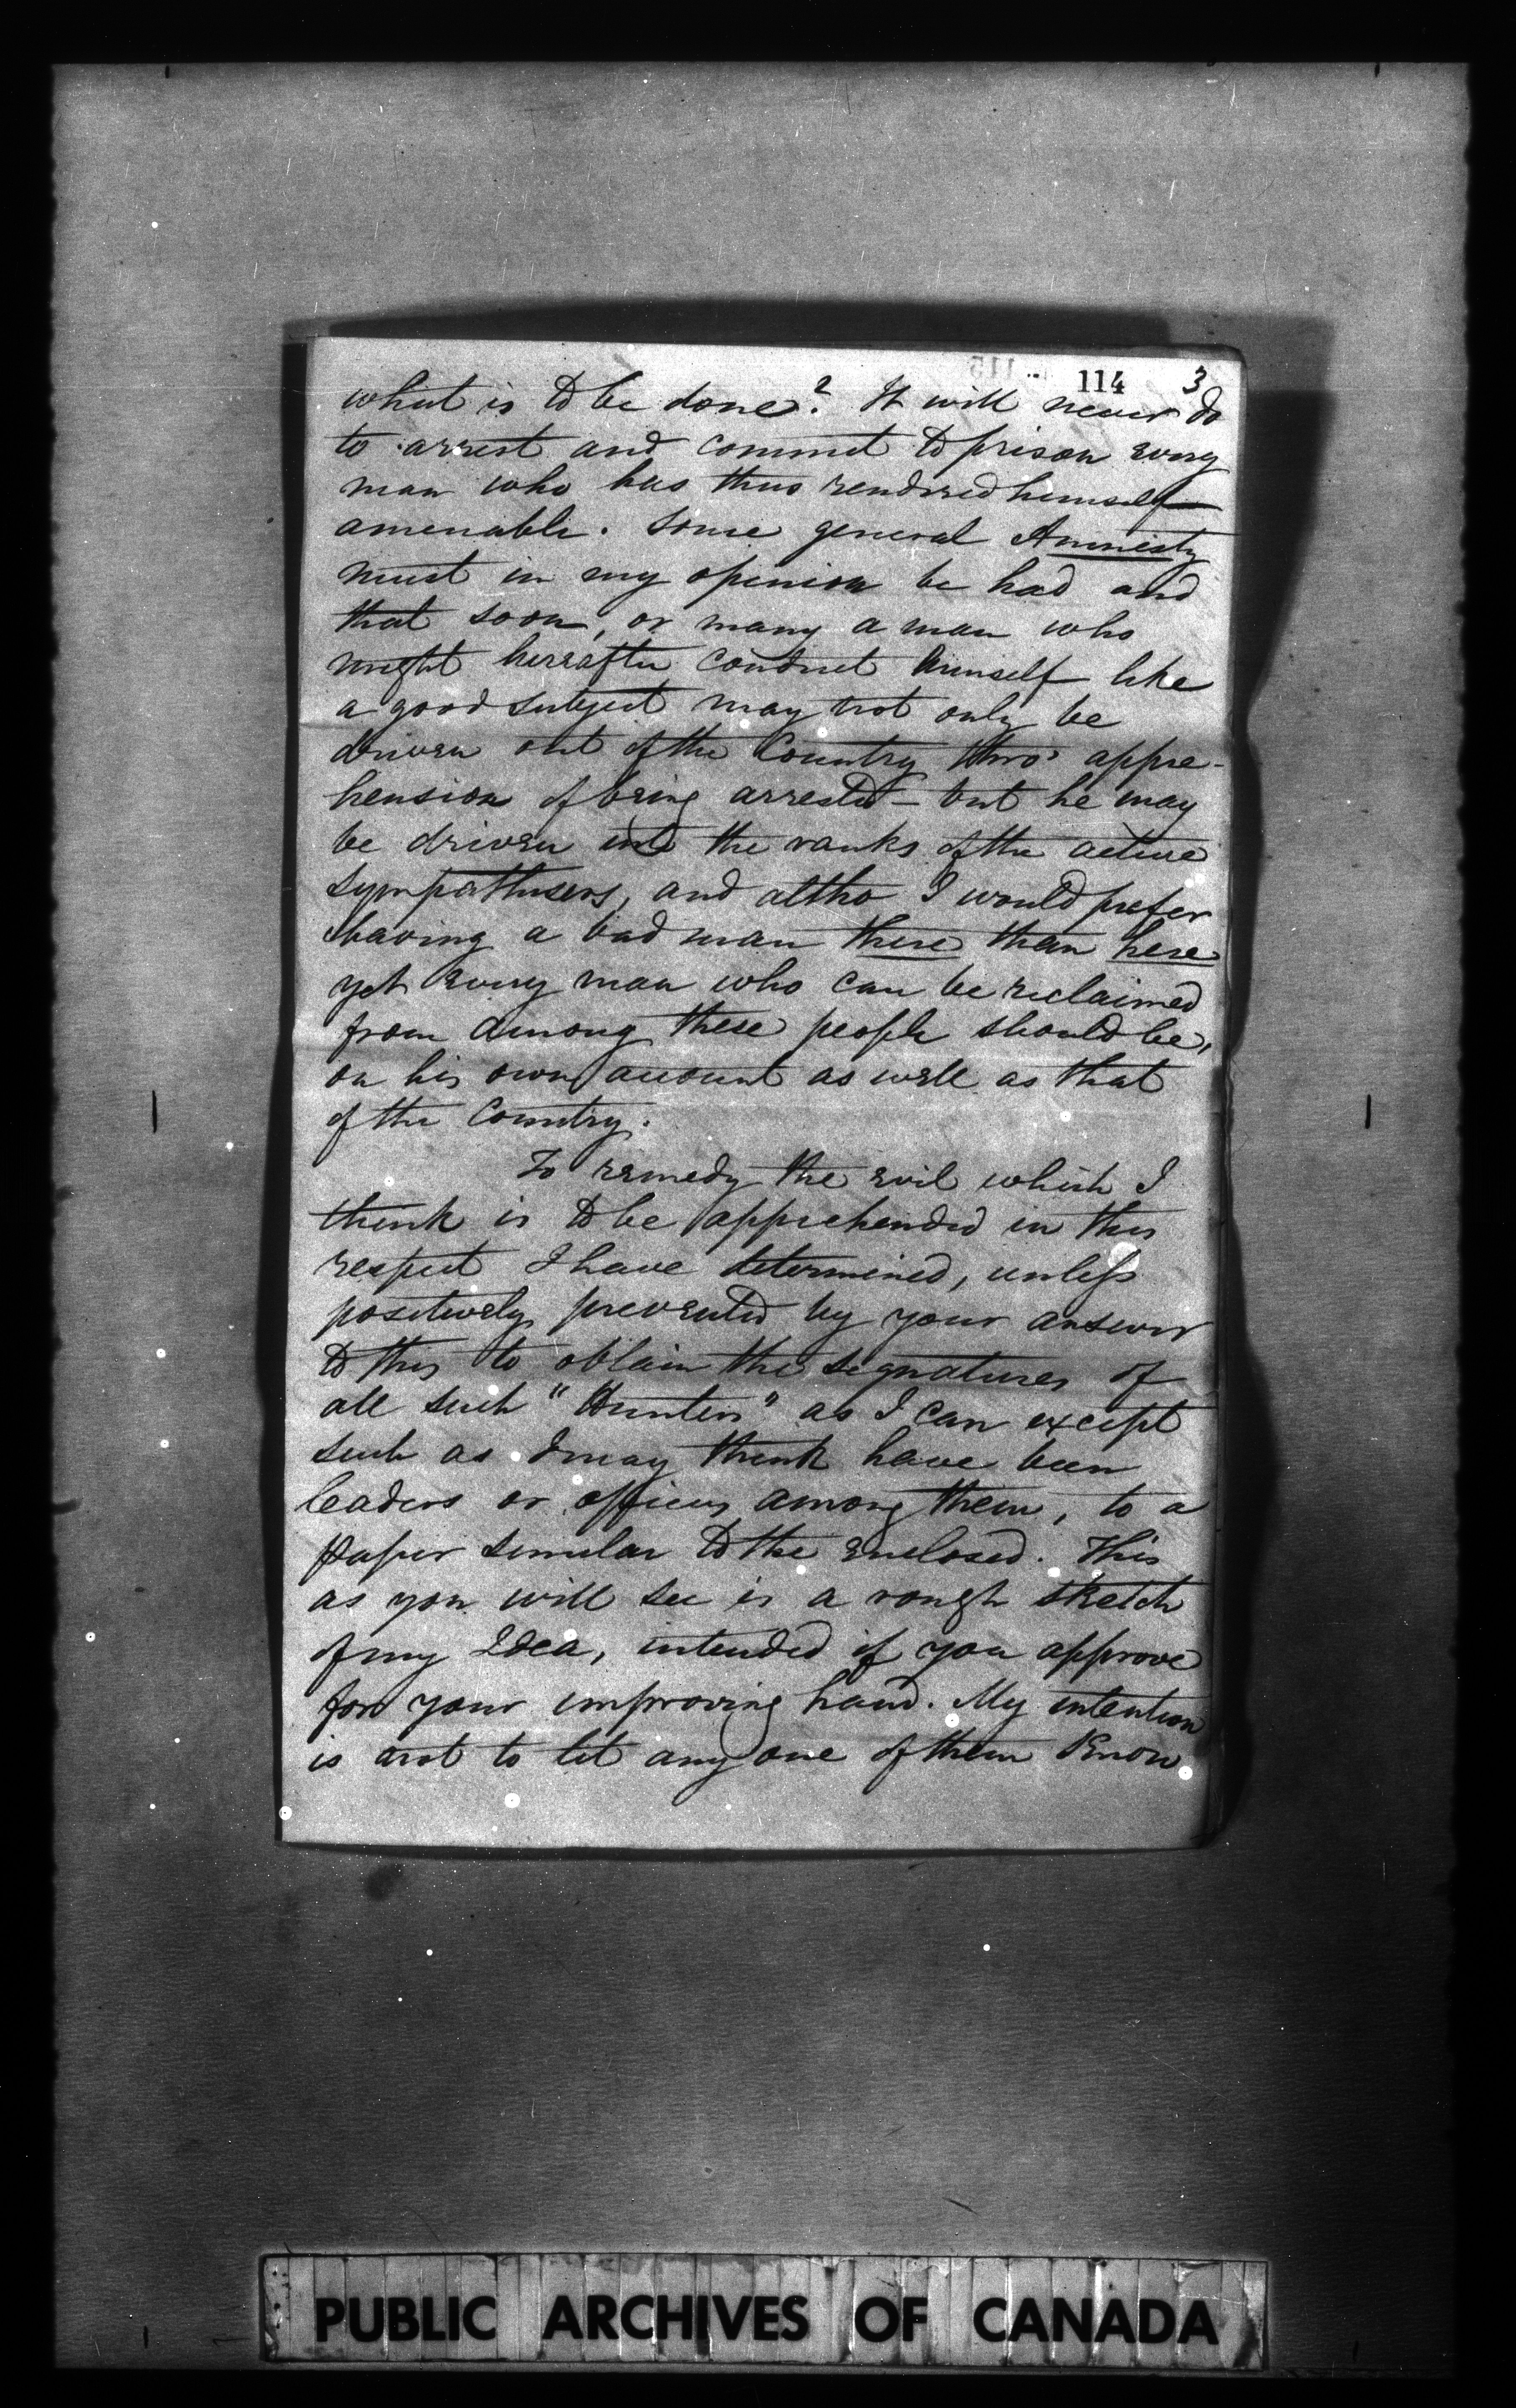 114 3
what is to be done? It will never do
to arrest and commit to prison every
man who has thus rendered himself
amenable. Some general Amnesty
must in my opinion be had and
that soon, or many a man who
might hereafter conduct himself like
a good subject may not only be
driven out of the Country thro' appre-
hension of being arrested – but he may
be driven into the ranks of the active
sympathisers, and altho I would prefer
having a bad man there than here
yet every man who can be reclaimed
from among these people should be,
on his own account as well as that
of the Country.
To remedy the evil which I
think is to be apprehended in this
respect I have determined, unless
positively prevented by your answer
to this to obtain the signatures of
all such "Hunters" as I can except
such as I may think have been
leaders or officers among them, to a
paper similar to the enclosed. This
as you will see is a rough sketch
of my Idea, intended if you approve
for your improving hand. My intention
is not to let any one of them know
PUBLIC ARCHIVES OF CANADA